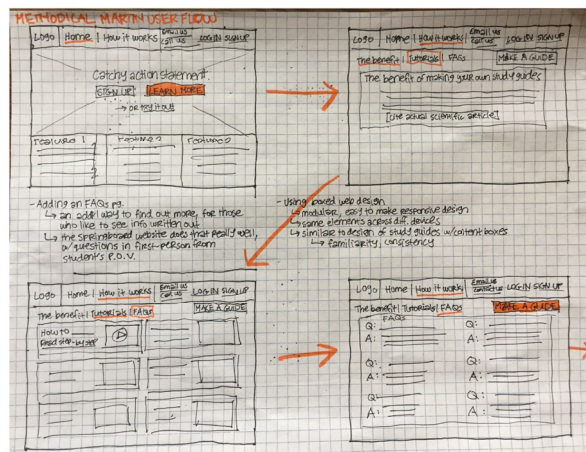 METHODICAL MARTIN USER FLOW
Logo | Home | How it works | Email us Call us LOG IN SIGN UP
Catchy action statement
SIGN UP LEARN MORE
→ or try it out
Feature 1 Feature 2 Feature 3
Logo Home | How it works | Email us Call us LOG IN SIGN UP
The benefit | Tutorials | FAQs MAKE A GUIDE
The benefit of making your own study guides
[Cite actual scientific article]
- Adding an FAQs pg.
↳ an add'l way to find out more, for those
who like to see info written out
↳ the springboard website does that really well,
w/questions in first-person from
student's P.O.V.
- Using boxed web design
↳ modular, easy to make responsive design
↳ same elements across dif. devices
↳ similar to design of study guides w/content boxes
↳ familiarity, consistency
Logo Home | How it works | Email us Call us LOG IN SIGN UP
The benefit | Tutorials | FAQs MAKE A GUIDE
How to
Read step-by-step
Logo Home | How it works | Email us Call us LOG IN SIGN UP
The benefit | Tutorials | FAQs MAKE A GUIDE
FAQs
Q: Q:
A: A:
Q: Q:
A: A:
Q: Q:
A: A: